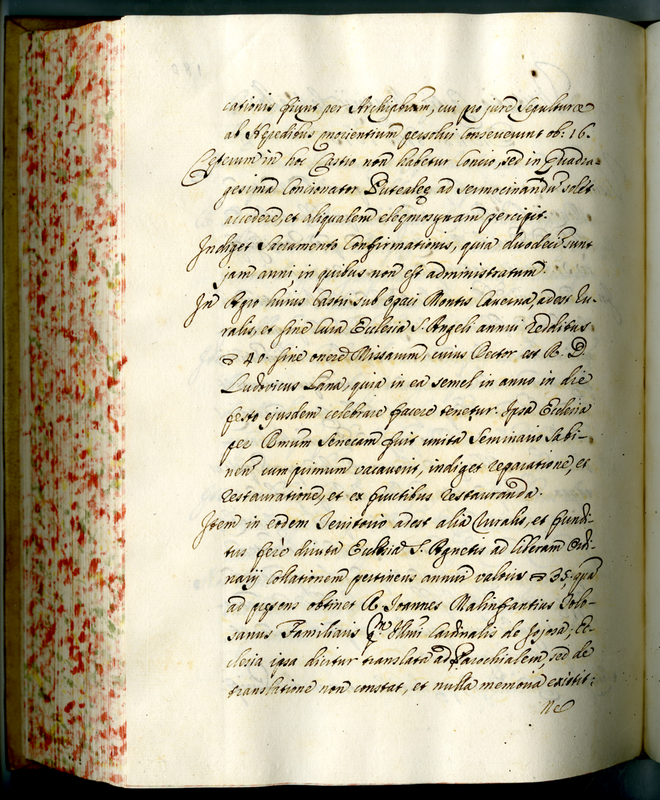 cationis fiunt per Archiphrum, cui pro jure sepulturæ
ab Heredibus morientium persolvi consueverunt ob: 16.
Ceterum in hoc Castro non habetur Concio, sed in Quadra=
gesima Concionator ad sermocinandũ solet
accedere, et aliqualem eleemosynam percipit.
Indiget Sacramento Confirmationis, quia duodecĩ sunt
jam anni in quibus non est administratum.
In Agro huius Castri sub opaci Montis Caverna, adest Ru-
ralis, et sine Cura Ecclesia S. Angeli annui redditus
40. sine onere Missarum, cuius Rector est R. D.
Ludovicus Lana, quia in ea semel in anno in die
festo ejusdem celebrare facere tenetur. Ipsa Ecclesia
per Senecam fuit unita Seminario Sabi-
nen̄ cum primum vacaverit, indiget reparatione, et
restauratione, et ex fructibus restauranda.
Item in eodem Territorio adest alia Ruralis, et fundi-
tus ferè diruta Ecclesia S. Agnetis ad liberam Ordi-
narij Collationem pertinens annui valoris 35. quã
ad pr̃sens obtinet R. Joannes Malinfantius Tolo-
sanus Familiaris Illm̃i Cardinalis de Jojosa; Ec-
clesia ipsa dicitur translata ad Parochialem, sed de
translatione non constat, et nulla memoria existit:
Ne